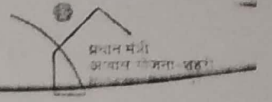 प्रधान मंत्री
आवास योजना शहरी